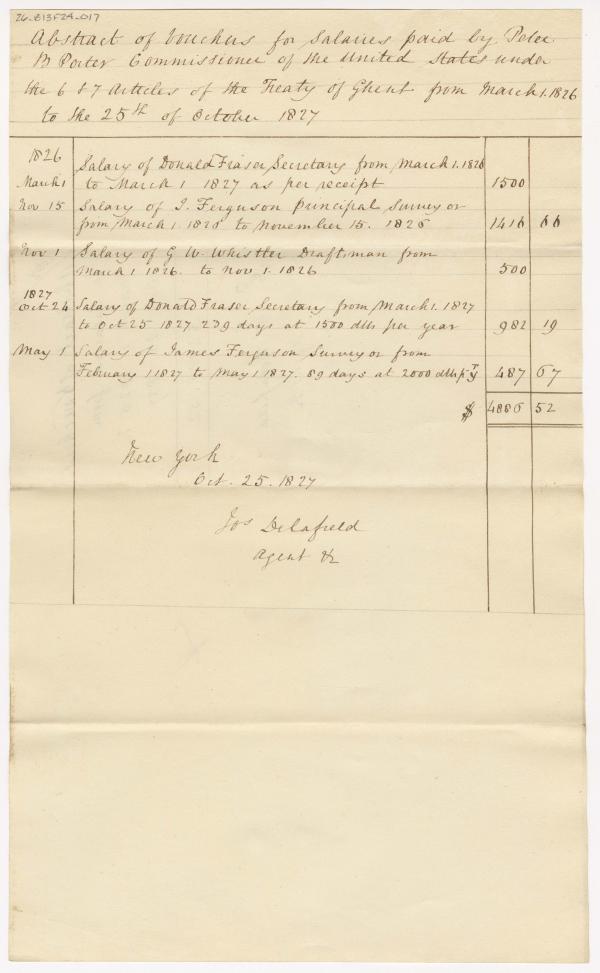 26-E13F24-017
Abstract of Vouchers for Salaries paid by Peter
B Porter Commissioner of the United States under
the 6 & 7 Articles of the Treaty of Ghent from March 1. 1826
to the 25th of October 1827
1826
March 1 Salary of Donald Fraser, Secretary from March 1. 1826
to March 1 1827 as per receipt 1500
Nov 15 Salary of J. Ferguson principal Surveyor
from March 1 1826 to November 15. 1826 1416 66
Nov 1 Salary of G W. Whistler Draftsman from
March 1 1826. to Nov 1. 1826 500
1827
Oct 24 Salary of Donald Fraser, Secretary from March 1. 1827
to Oct 25 1827 239 days at 1500 dlls per year 982 19
May 1 Salary of James Ferguson Surveyor from
February 1 1827 to May 1 1827. 89 days at 2000 dlls 487 67
$ 4886 52
New York
Oct. 25. 1827
Jos Delafield
Agent &c